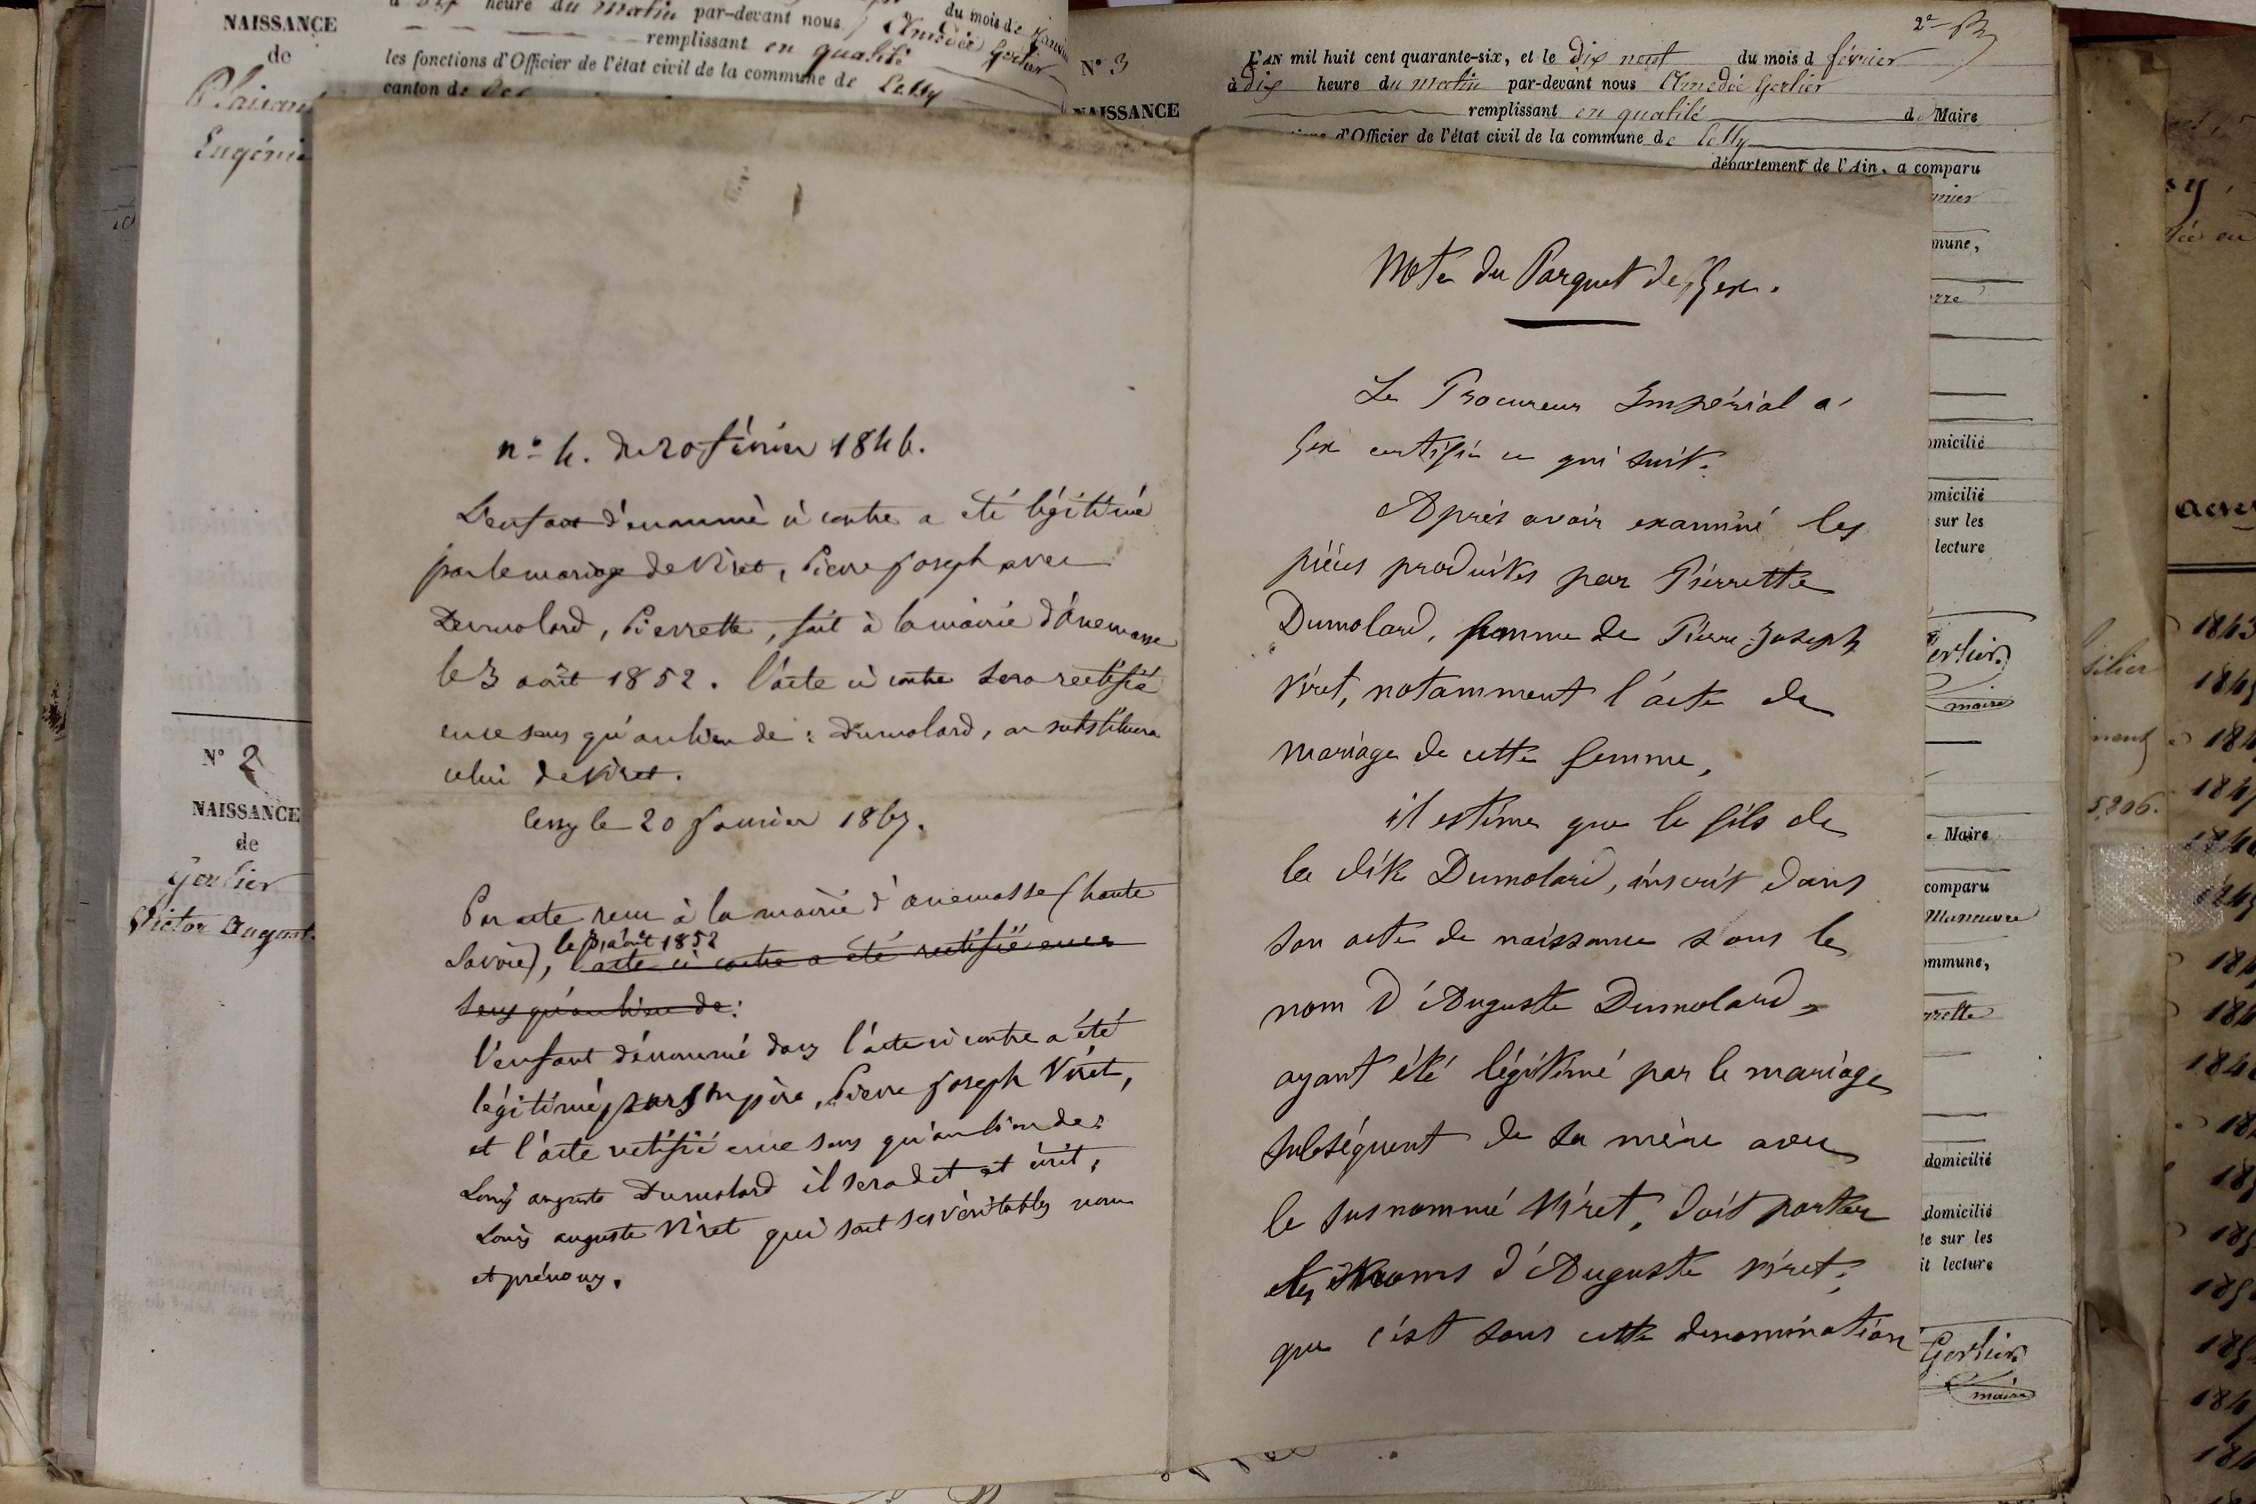 NAISSANCE
de
Eugénie
N° 2
NAISSANCE
de
Gerlier
Victor August
heure du matin par-devant nous Amédée Gerlier
du mois de
remplissant en qualité
les fonctions d'Officier de l'état civil de la commune de Cessy
canton de
n° 4. du 20 février 1846.
L'enfant dénommé ci contre a été légitimé
par le mariage de Viret, Pierre Joseph avec
Dumolard, Pierrette, fait à la mairie d'Anemasse
le 3 août 1852. l'acte ci contre sera rectifié
en ce sens qu'au lieu de : Dumolard, on substituera
celui de Viret.
Cessy le 20 janvier 1867.
Par acte reçu à la mairie d'anemasse (haute
Savoie), le 3 août 1852
l'acte ci contre a été rectifié en ce
sens qu'au lieu de :
l'enfant dénommé dans l'acte ci contre a été
légitimé par son père, Pierre Joseph Viret,
et l'acte rectifié en ce sens qu'au lieu de :
Louis auguste Dumolard il sera dit et écrit,
Louis auguste Viret qui sont ses véritables nom
et prénoms.
2e
N° 3
NAISSANCE
L'AN mil huit cent quarante-six, et le dix neuf du mois d février
à dix heure du matin par-devant nous Amédée Gerlier
remplissant en qualité de Maire
d'Officier de l'état civil de la commune de Cessy
département de l'Ain, a comparu
Note du Parquet de Gex.
Le Procureur Impérial à
Gex certifie ce qui suit.
Après avoir examiné les
pièces produites par Pierrette
Dumolard, femme de Pierre-Joseph
Viret, notamment l'acte de
mariage de cette femme,
il estime que le fils de
la dite Dumolard, inscrit dans
son acte de naissance sous le
nom d'Auguste Dumolard
ayant été légitimé par le mariage
subséquent de sa mère avec
le susnommé Viret, doit porter
les noms d'Auguste Viret;
que c'est sous cette denomination
mune,
omicilié
omicilié
sur les
lecture
erlier
maire
Maire
comparu
Manœuvre
ommune,
domicilié
domicilié
sur les
it lecture
Gerlier
maire
5,206.
1843